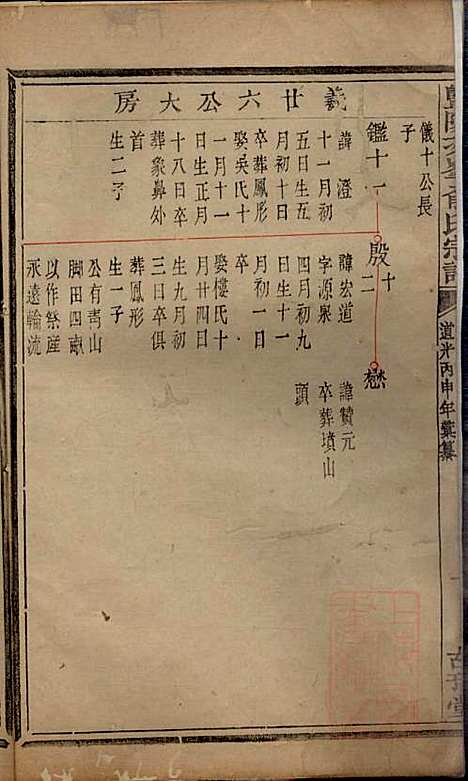 羲廿六公大房
儀十公長
子
鑑十一
諱澄
十一月初
五日生五
月初十日
卒葬鳳形
娶吳氏十
一月十一
日生正月
十八日卒
葬象鼻外
首
生二子
殷十二
諱宏道
字源泉
四月初九
日生十一
月初一日
卒
娶樓氏十
月廿四日
生九月初
三日卒俱
葬鳳形
生一子
公有青山
脚田四畝
以作祭產
永遠輪流
懋
諱贊元
卒葬墳山
頭
俞氏宗譜
道光丙申年彙纂